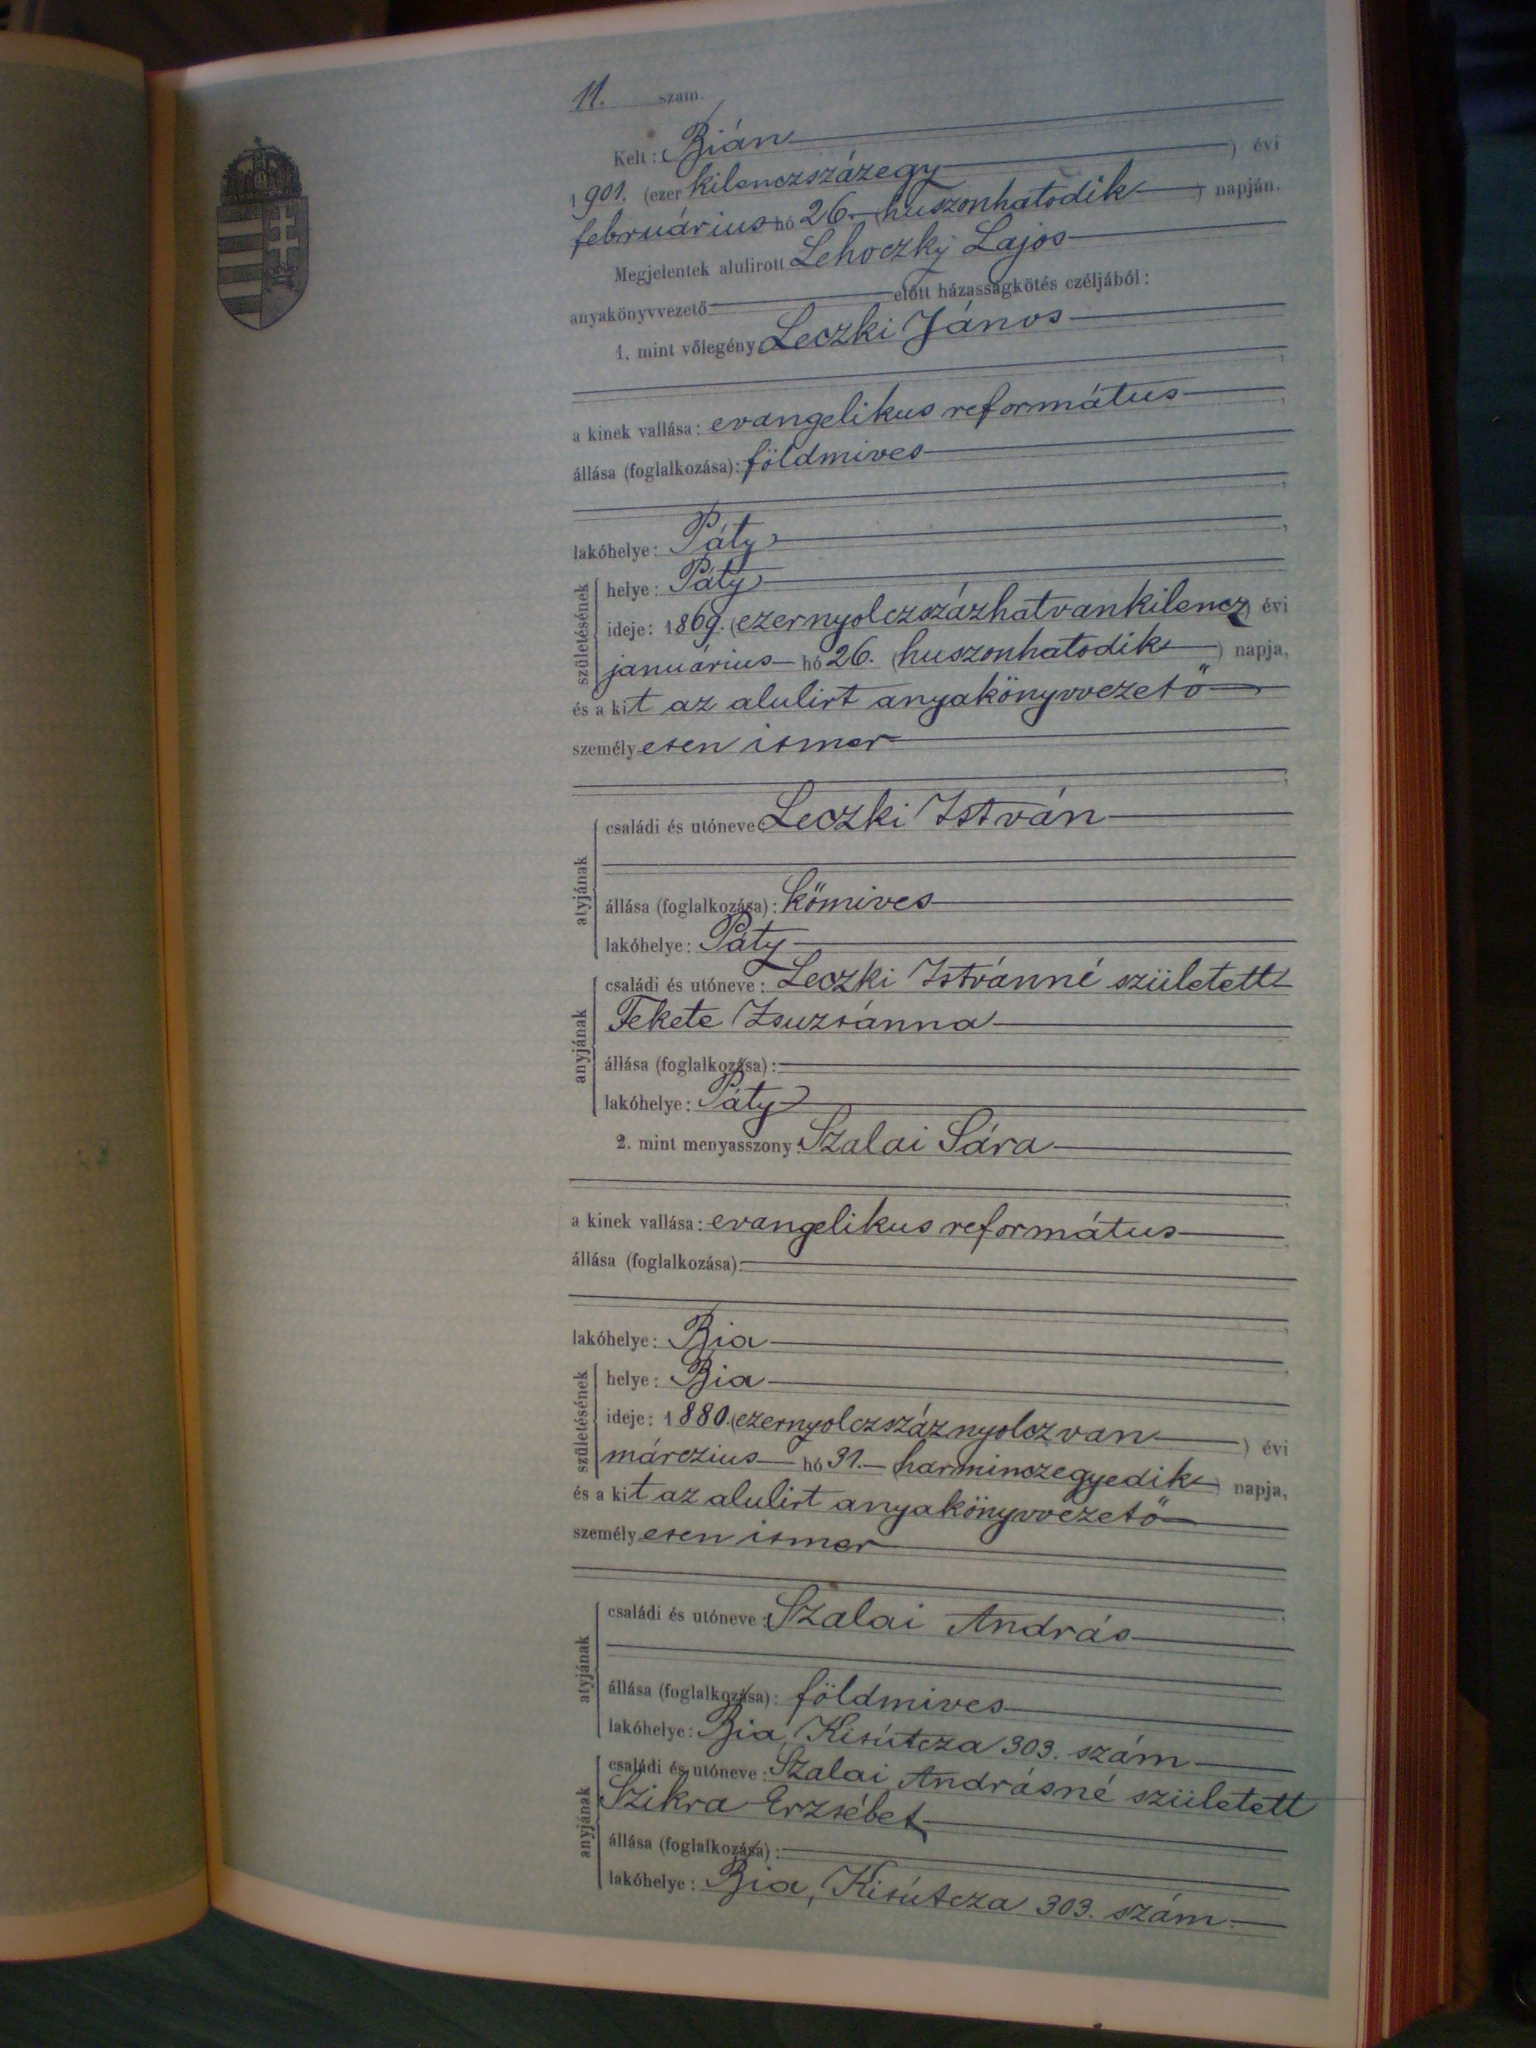 11. szám.
Kelt: Bián
1901. (ezer kilenczszázegy) évi
február ius hó 26. (huszonhatodik) napján.
Megjelentek alulirott Lehoczky Lajos
anyakönyvvezető előtt házasságkötés czéljából:
1. mint vőlegény Leczki János
a kinek vallása: evangelikus református
állása (foglalkozása): földmives
lakóhelye: Páty
születésének
helye: Páty
ideje: 1869. (ezernyolczszázhatvankilencz) évi
januárius hó 26. (huszonhatodik) napja,
és a kit az alulirt anyakönyvvezető
személyesen ismer
atyjának
családi és utóneve Leczki István
állása (foglalkozása): kőmives
lakóhelye: Páty
anyjának
családi és utóneve: Leczki Istvánné született
Fekete Zsuzsánna
állása (foglalkozása):
lakóhelye: Páty
2. mint menyasszony: Szalai Sára
a kinek vallása: evangelikus református
állása (foglalkozása):
lakóhelye: Bia
születésének
helye: Bia
ideje: 1880. (ezernyolczszáznyolczvan) évi
márczius hó 31. harminczegyedik) napja,
és a kit az alulirt anyakönyvvezető
személyesen ismer
atyjának
családi és utóneve: Szalai András
állása (foglalkozása): földmives
lakóhelye: Bia, Kisútcza 303. szám
anyjának
családi és utóneve: Szalai Andrásné született
Szikra Erzsébet
állása (foglalkozása):
lakóhelye: Bia, Kisútcza 303. szám.